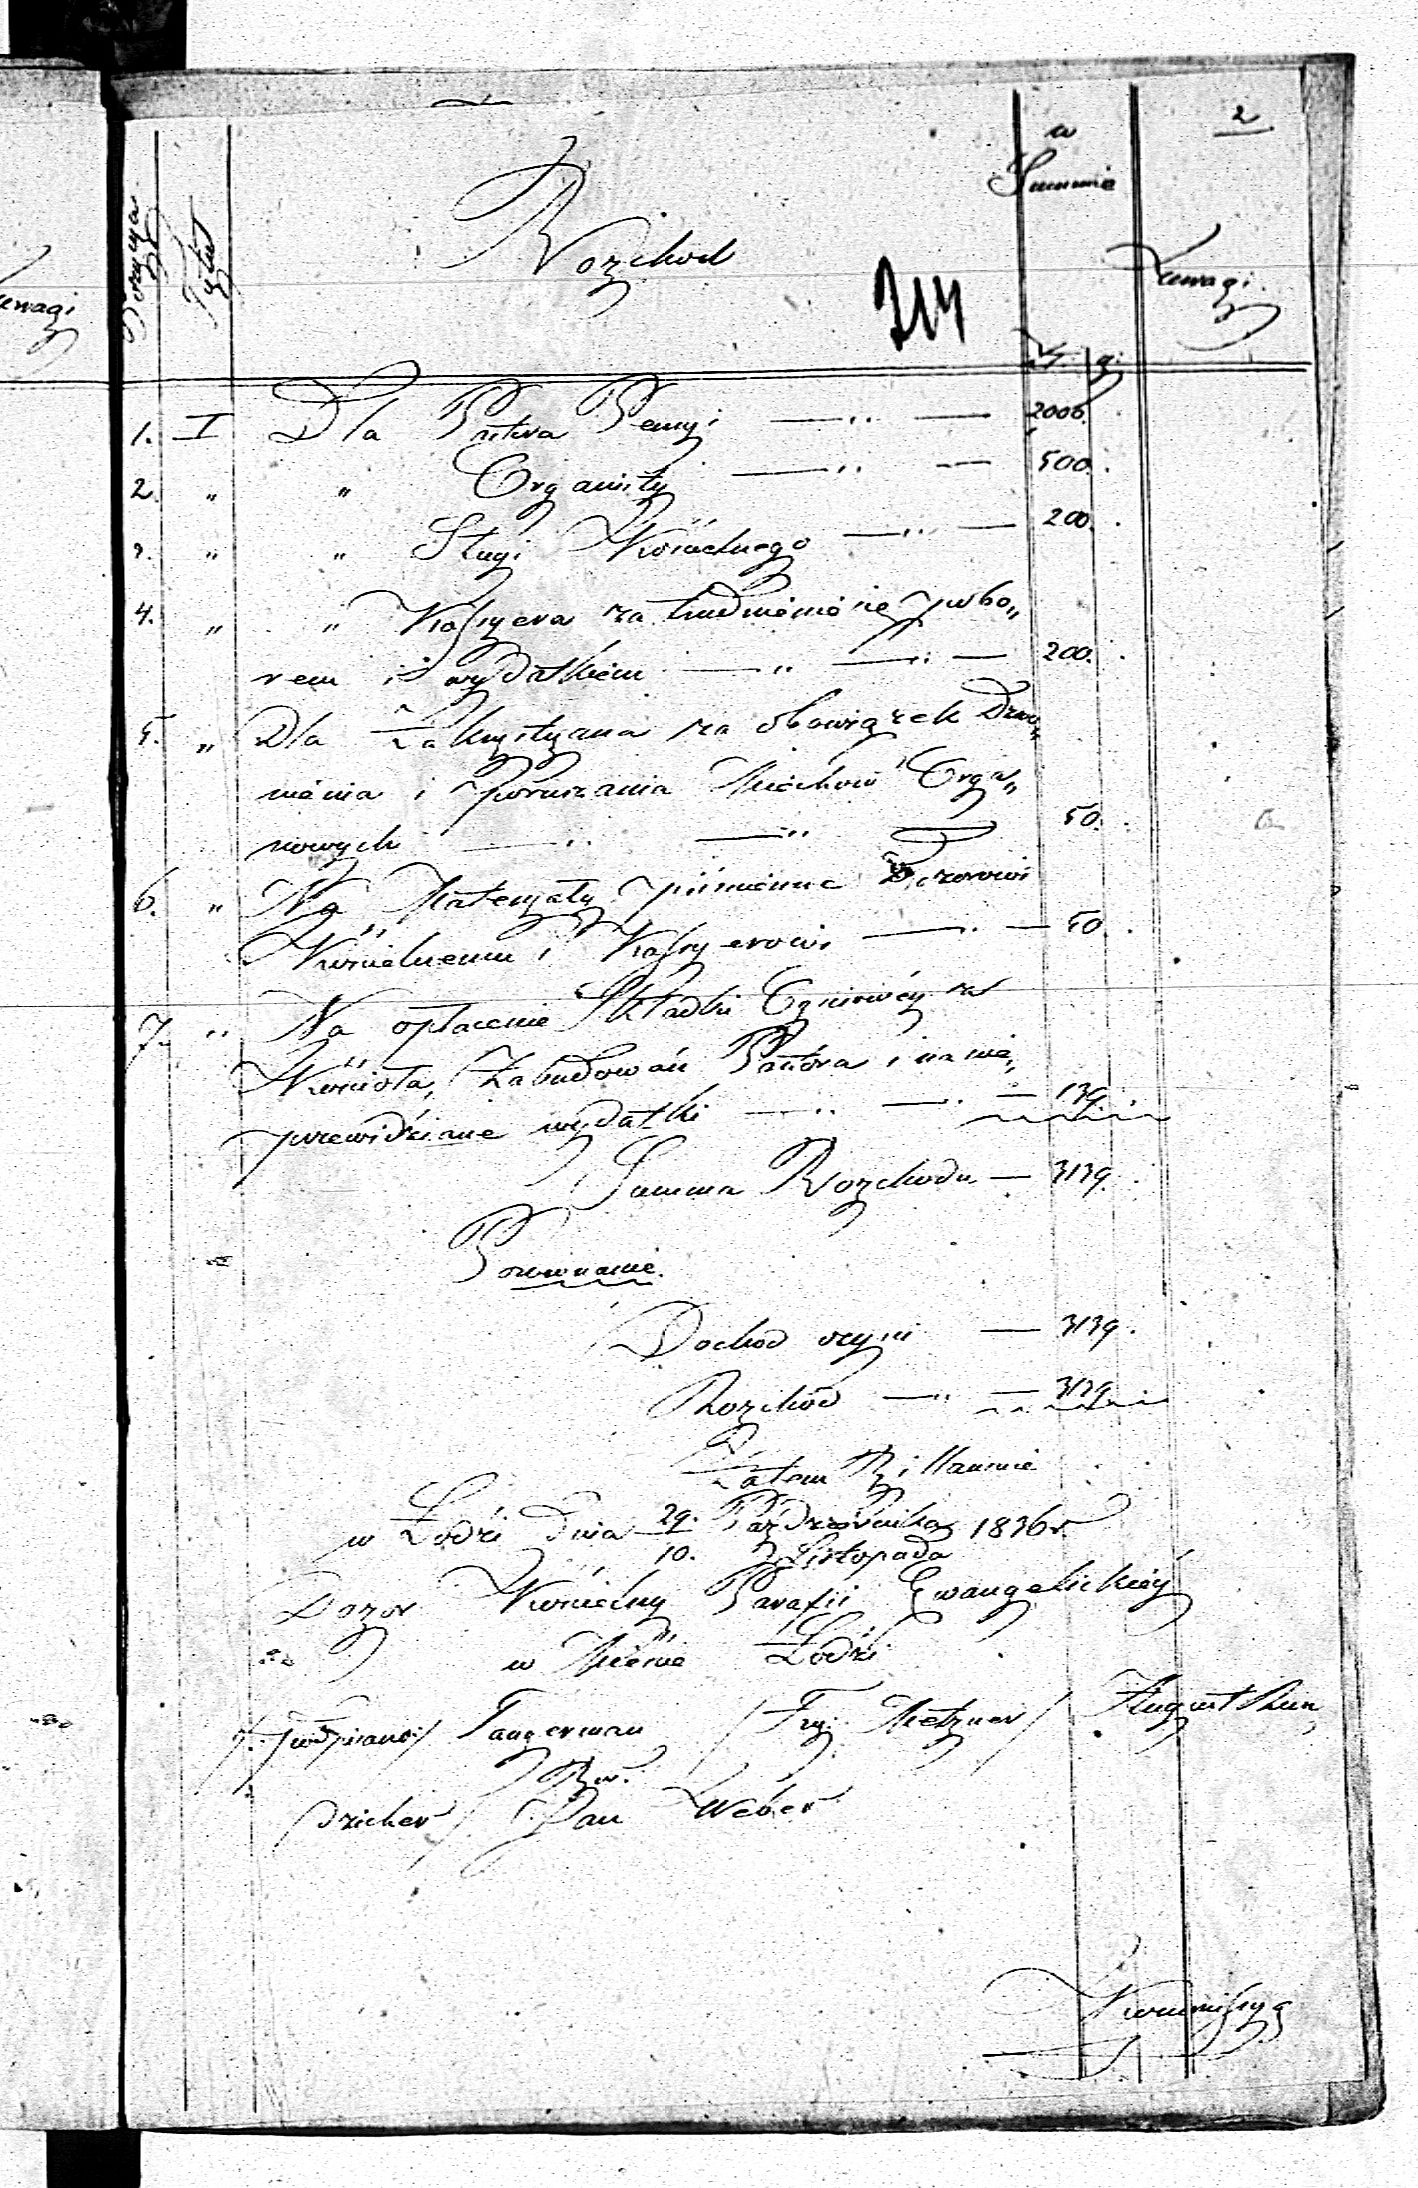 2
w
Summie
Pozycya
Tytuł
Rozchod
Uwagi
uwagi
214
Zł. g.
1. I Dla Pastora Pensyi — „ — 2000.
2. „ „ Organisty — „ — 500.
3. „ „ Sługi Kościelnego — „ — 200.
4. „ „ Kassyera za trudnienie się pobo„
rem i wydatkiem — „ — „ — 200.
5. „ Dla Zakrystyana za obowiązek Dzwo„
nienia i poruszania Miechow Orga„
nowych — „ — „ — 50.
6. „ Na Materyały piśmienne Dozorowi
Kościelnemu i Kassyerowi — „ — 50.
7. „ Na opłacenie Składki Ogniowéy za
Kościoła, Zabudowań Pastora i na nie„
przewidziane wydatki — „ — „ — 139.
Summa Rozchodu — 3139.
Porownanie.
Dochod czyni — 3139.
Rozchód — „ — 3139.
Zatem Billansuie
w Łodzi Dnia 29. Października 1836 r.
10. Listopada
Dozor Kościelny Parafii Ewangelickiéy
w Mieście Łodzi
/podpisano/ Tangerman / Fry: Metzner / August Run
Bur.
dzieher / Jan Weber